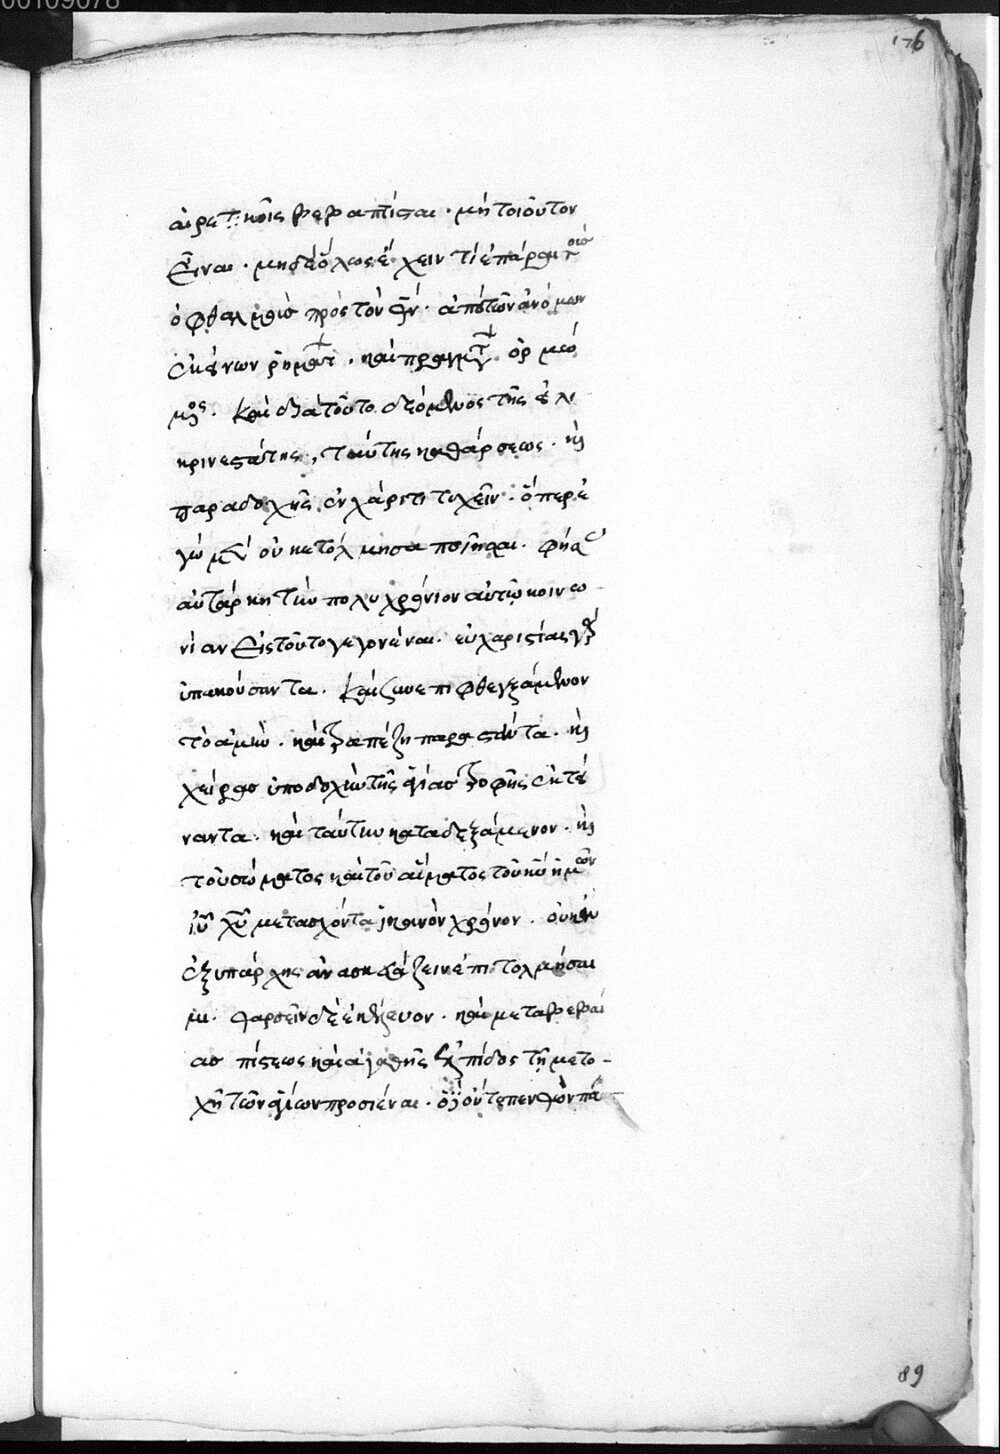 00109078
176
αἱρετικοῖς βεβαπτίσθαι · μὴ τοιοῦτον
εἶναι · μηδὲ ὅλως ἔχειν τὶ ἐπάραι τοὺς
ὀφθαλμοὺς πρὸς τὸν θν̄ · ἀπὸ τῶν ἀνόμων
ἐκείνων ῥημάτ · καὶ πραγμάτ ὁρμώ
μος · καὶ διὰ τοῦτο δεόμενος τῆς εἰλι
κρινεστάτης, ταύτης καθάρσεως · κ
παραδοχῆς κ χάριτι τυχεῖν · ὅπερ ἐ
γὼ μὲν οὐκ ἐτόλμησα ποιῆσαι · φήσας
αὐτάρκη τὴν πολυχρόνιον αὐτῶ κοινω
νίαν εἰς τοῦτο γεγονέναι · εὐχαριστίας γὰρ
ὑπακούσαντα · καὶ συνεπιφθεγξάμενον
τὸ ἀμὴν · καὶ τραπέζη παραστάντα · κ
χεῖρας εἰς ὑποδοχὴν τῆς ἁγίας τροφῆς ἐκτεί
ναντα · καὶ ταύτην καταδεξάμενον · κ
τοῦ σώματος καὶ τοῦ αἵματος τοῦ κῡ ἡμῶν
ἰῡ χῡ μετασχόντα ἱκανὸν χρόνον · οὐκ ἂν
ἐξ ὑπαρχῆς ἀνασκευάζειν ἔτι τολμήσαι
μι · θαρσεῖν δὲ ἐκέλευον · καὶ μετὰ βεβαί
ας πίστεως καὶ ἀγαθῆς ἐλπίδος τῆ μετο-
χῆ τῶν ἁγίων προσιέναι · ὁ δὲ οὔτε πενθῶν πά
89